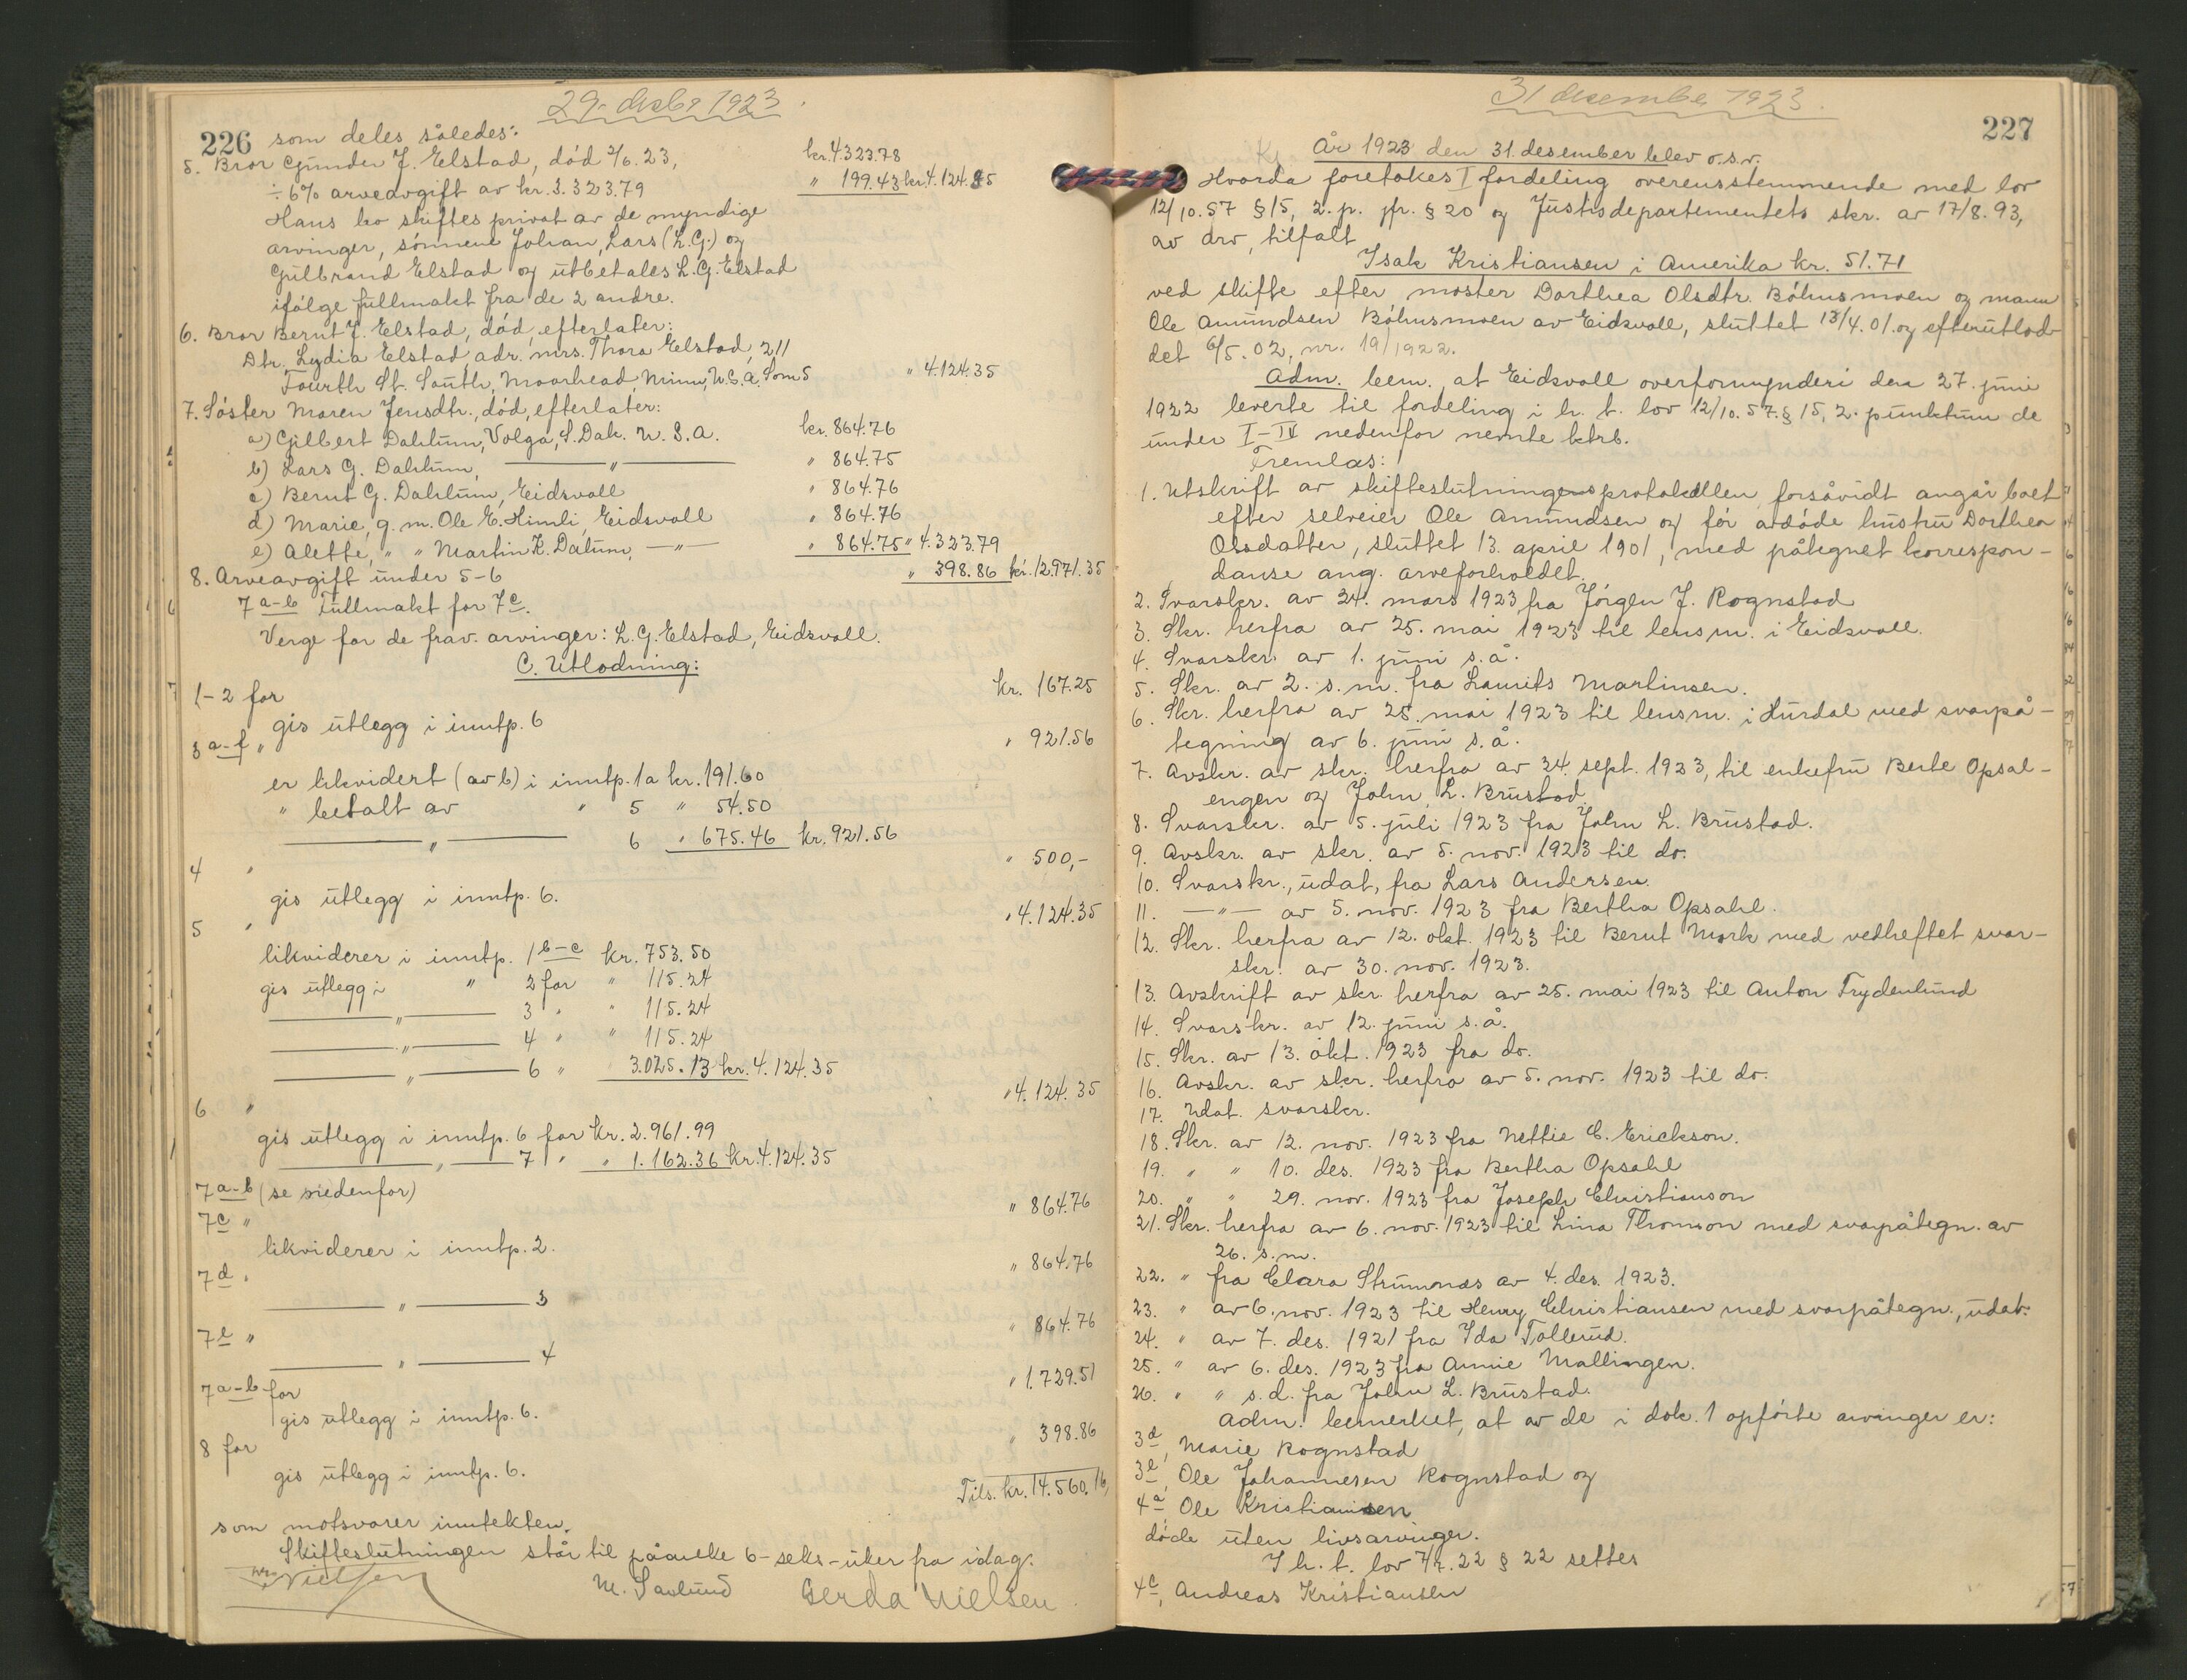 29. desbr 1923.
226 som deles således:
5. Bror Gunder J. Elstad, död 2/6.23, kr. 4.323.78
÷ 6% arveavgift av kr. 3.323.79 " 199.43 kr. 4.124.35
Hans bo skiftes privat av de myndige
arvinger, sönnene Johan, Lars (L.G.) og
Gulbrand Elstad og utbetales L.G. Elstad
ifölge fullmakt fra de 2 andre.
6. Bror Bernt J. Elstad, död, efterlater:
Dtr. Lydia Elstad, adr. mrs. Thora Elstad, 211
Fourth St. South, Moorhead, Minn, U.S.A. Som 5 " 4.124.35
7. Söster Maren Jensdtr., död, efterlater:
a) Gilbert Dahlum, Volga, S. Dak. U.S.A. kr. 864.76
b) Lars G. Dahlum, — " — " 864.75
c) Bernt G. Dahlum, Eidsvoll " 864.76
d) Marie, g. m. Ole E. Himli, Eidsvoll " 864.76
e) Alette, " " Martin K. Dalum, — " — " 864.75 " 4.323.79
8. Arveavgift under 5-6 " 398.86 kr. 12.971.35
7 a-b Fullmakt for 7c.
Verge for de frav. arvinger: L.G. Elstad, Eidsvoll.
C. Utlodning:
1-2 for kr. 167.25
gis utlegg i inntp. 6
3 a-f " " 921.56
er likvidert (av b) i inntp. 1a kr. 191.60
" betalt av " 5 " 54.50
— " — 6 " 675.46 kr. 921.56
4 " " 500,-
gis utlegg i inntp. 6.
5 " " 4.124.35
likviderer i inntp. 1 b-c kr. 753.50
gis utlegg i " 2 for " 115.24
— " — 3 " " 115.24
— " — 4 " " 115.24
— " — 6 " 3.025.13 kr. 4.124.35
6 " " 4.124.35
gis utlegg i inntp. 6 for kr. 2.961.99
— " — 7 " " 1.162.36 kr. 4.124.35
7 a-b (se nedenfor)
7c " " 864.76
likviderer i inntp. 2.
7d " " 864.76
— " — 3
7e " " 864.76
— " — 4
7 a-b for " 1.729.51
gis utlegg i inntp. 6.
8 for " 398.86
gis utlegg i inntp. 6.
Tils. kr. 14.560.16,
som motsvarer inntekten.
Skifteslutningen står til påanke 6-seks-uker fra idag.
Nielsen M. Savlund Gerda Nielsen
31 desember 1923.
227
År 1923 den 31. desember blev o.s.v.
Hvorda foretokes I fordeling overensstemmende med lov
12/10.57 § 15, 2. p. jfr. § 20 og Justisdepartementets skr. av 17/8.93,
av arv, tilfalt
Isak Kristiansen i Amerika kr. 51.71
ved skifte efter moster Dorthea Olsdtr. Böhnsmoen og mann
Ole Amundsen Böhnsmoen av Eidsvoll, sluttet 13/4.01. og efterutlod-
det 6/5.02, nr. 19/1922.
Adm. bem., at Eidsvoll overformynderi den 27. juni
1922 leverte til fordeling i h. t. lov 12/10.57. § 15, 2. punktum de
under I-IV nedenfor nevnte ktrb.
Fremlas:
1. Utskrift av skifteslutningensprotokollen forsåvidt angår boet
efter selveier Ole Amundsen og för avdöde hustru Dorthea
Olsdatter, sluttet 13. april 1901, med påtegnet korrespon-
danse ang. arveforholdet.
2. Svarskr. av 24. mars 1923 fra Jörgen J. Rognstad
3. Skr. herfra av 25. mai 1923 til lensm. i Eidsvoll.
4. Svarskr. av 1. juni s.å.
5. Skr. av 2. s.m. fra Laurits Martinsen.
6. Skr. herfra av 25. mai 1923 til lensm. i Hurdal med svarpå-
tegning av 6. juni s.å.
7. Avskr. av skr. herfra av 24. sept. 1923, til enkefru Berte Opsal-
engen og John L. Brustad.
8. Svarskr. av 5. juli 1923 fra John L. Brustad.
9. Avskr. av skr. av 5. nov. 1923 til do.
10. Svarskr., udat, fra Lars Andersen.
11. — " — av 5. nov. 1923 fra Bertha Opsahl.
12. Skr. herfra av 12. okt. 1923 til Bernt Mork med vedheftet svar-
skr. av 30. nov. 1923.
13. Avskrift av skr. herfra av 25. mai 1923 til Anton Trydenlund
14. Svarskr. av 12. juni s.å.
15. Skr. av 13. okt. 1923 fra do.
16. Avskr. av skr. herfra av 5. nov. 1923 til do.
17. Udat. svarskr.
18. Skr. av 12. nov. 1923 fra Nettie C. Erickson.
19. " " 10. des. 1923 fra Bertha Opsahl
20. " " 29. nov. 1923 fra Joseph Christianson
21. Skr. herfra av 6. nov. 1923 til Lina Thomson med svarpåtegn. av
26. s.m.
22. " fra Clara Strumnæs av 4. des. 1923.
23. " av 6. nov. 1923 til Henry Christiansen med svarpåtegn., udat.
24. " av 7. des. 1921 fra Ida Tollerud.
25. " av 6. des. 1923 fra Annie Mallingen.
26. " " s.d. fra John L. Brustad.
Adm. bemerket, at av de i dok. 1 opförte arvinger er:
3d, Marie Rognstad
3e, Ole Johannesen Rognstad og
4a, Ole Kristiansen
döde uten livsarvinger.
I h. t. lov 7/7.22 § 22 settes
4c, Andreas Kristiansen